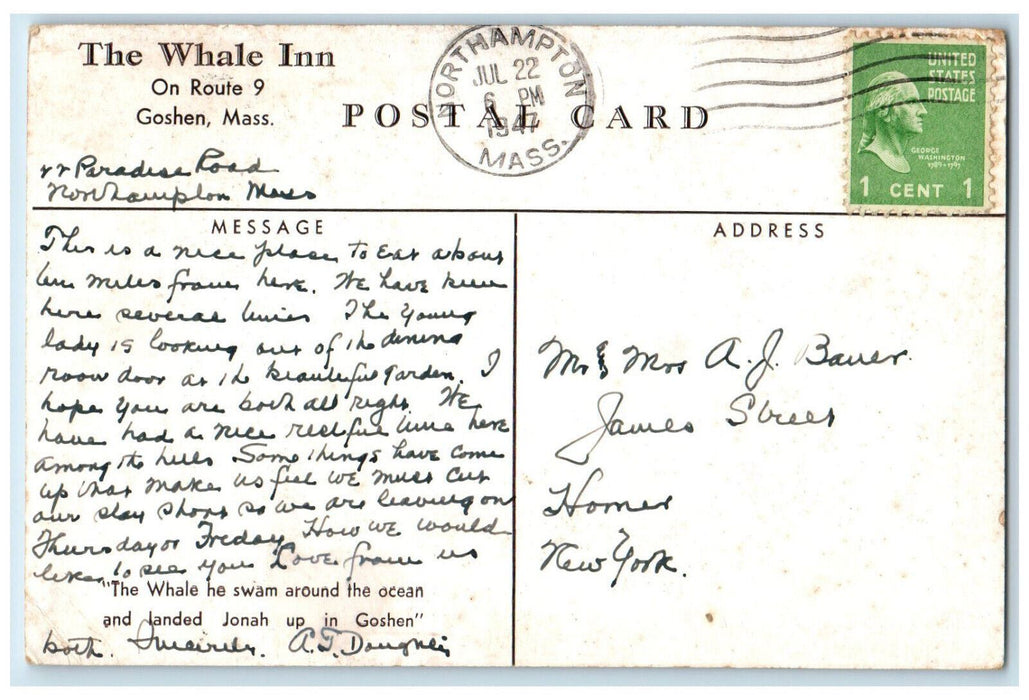 The Whale Inn
On Route 9
Goshen, Mass.
POSTAL CARD
NORTHAMPTON
JUL 22
6 PM
1947
MASS.
UNITED
STATES
POSTAGE
GEORGE
WASHINGTON
1789-1797
1 CENT 1
Paradise Road
Northampton Mass
MESSAGE
This is a nice place to Eat about
ten miles from here. We have been
here several times The Young
lady is looking out of the dining
room door at the beautiful garden. I
hope you are both all right. We
have had a nice restful time here
among the hills Some things have come
up that make us feel we must cut
our stay short so we are leaving on
Thursday or Friday. How we would
like to see you Love from us
"The Whale he swam around the ocean
and landed Jonah up in Goshen"
both. Sincerely. A.T.
ADDRESS
Mr & Mrs A. J. Bauer.
James Street
Homer
New York.